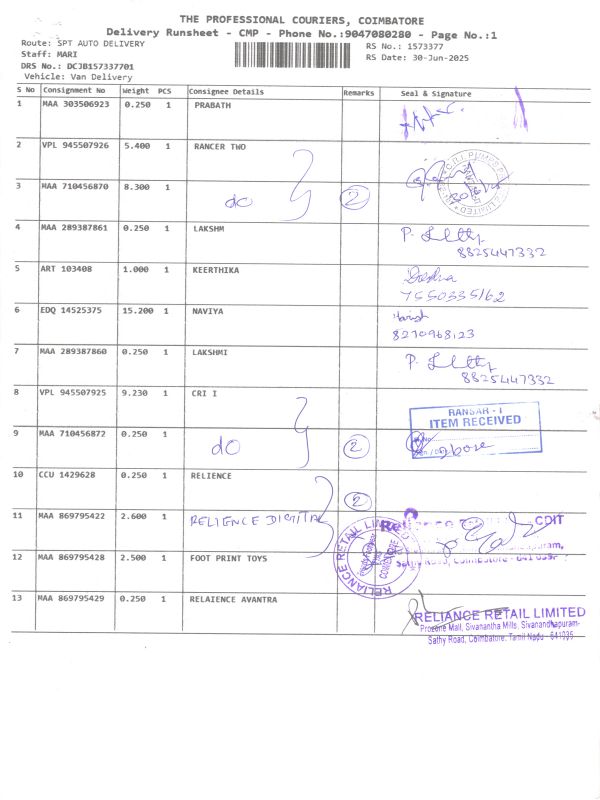 THE PROFESSIONAL COURIERS, COIMBATORE
Delivery Runsheet - CMP - Phone No.:9047080280 - Page No.:1
Route: SPT AUTO DELIVERY
RS No.: 1573377
Staff: MARI
RS Date: 30-Jun-2025
DRS No.: DCJB157337701
Vehicle: Van Delivery
S No Consignment No Weight PCS Consignee Details Remarks Seal & Signature
1 MAA 303506923 0.250 1 PRABATH
2 VPL 945507926 5.400 1 RANCER TWO
3 MAA 710456870 8.300 1 do 2
4 MAA 289387861 0.250 1 LAKSHM P.
8825447332
5 ART 103408 1.000 1 KEERTHIKA
7550335162
6 EDQ 14525375 15.200 1 NAVIYA Harish
8270968123
7 MAA 289387860 0.250 1 LAKSHMI P.
8825447332
8 VPL 945507925 9.230 1 CRI I
RANSAR - I
ITEM RECEIVED
9 MAA 710456872 0.250 1 do 2
10 CCU 1429628 0.250 1 RELIENCE 2
11 MAA 869795422 2.600 1 RELIENCE DIGITAL CDIT
RELIANCE RETAIL LIMITED
12 MAA 869795428 2.500 1 FOOT PRINT TOYS
13 MAA 869795429 0.250 1 RELAIENCE AVANTRA
RELIANCE RETAIL LIMITED
Prozone Mall, Sivanantha Mills, Sivanandhapuram-
Sathy Road, Coimbatore, Tamil Nadu - 641035